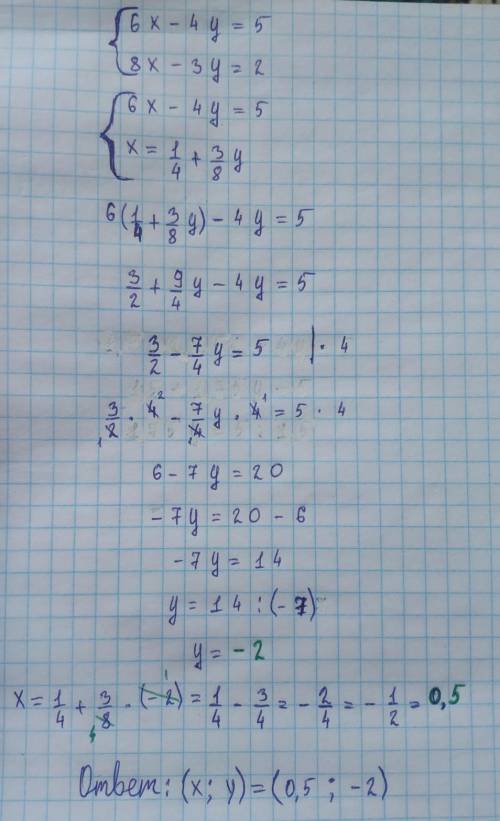 6x - 4y = 5
8x - 3y = 2
6x - 4y = 5
x = 1/4 + 3/8 y
6(1/4 + 3/8 y) - 4y = 5
3/2 + 9/4 y - 4y = 5
3/2 - 7/4 y = 5 | · 4
3/2 · 4 - 7/4 y · 4 = 5 · 4
6 - 7y = 20
- 7y = 20 - 6
- 7y = 14
y = 14 : (-7)
y = -2
x = 1/4 + 3/8 · (-2) = 1/4 - 3/4 = - 2/4 = - 1/2 = 0,5
Ответ: (x; y) = (0,5 ; -2)